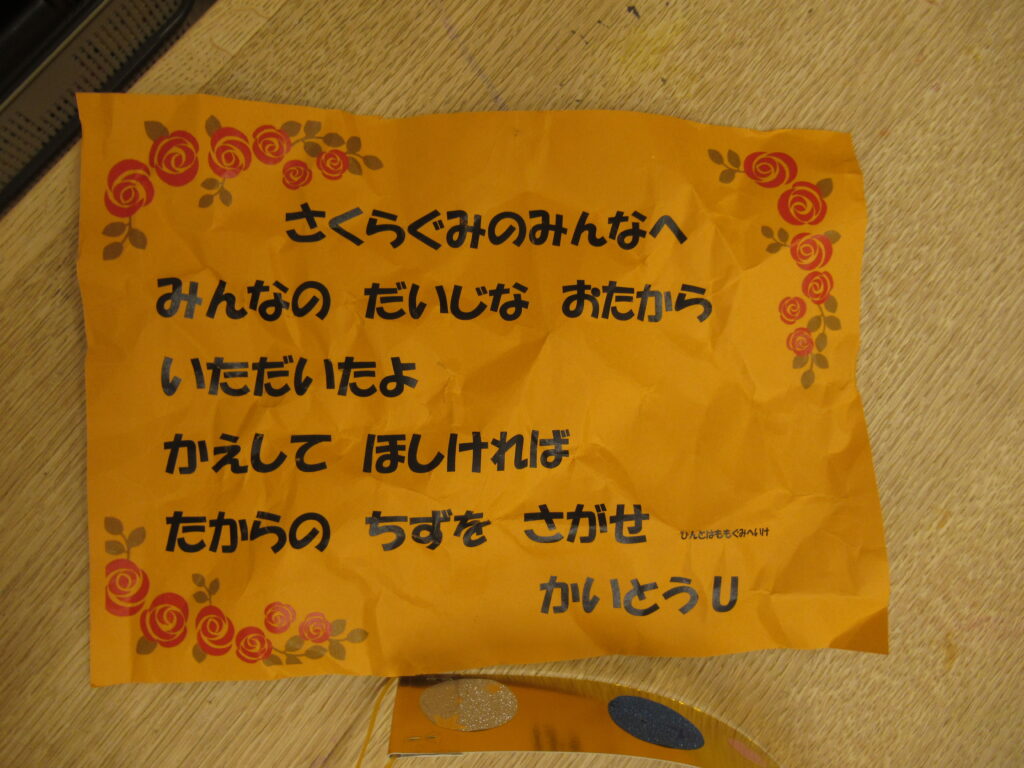 さくらぐみのみんなへ
みんなの だいじな おたから
いただいたよ
かえして ほしければ
たからの ちずを さがせ ひんとはももぐみへいけ
かいとうU